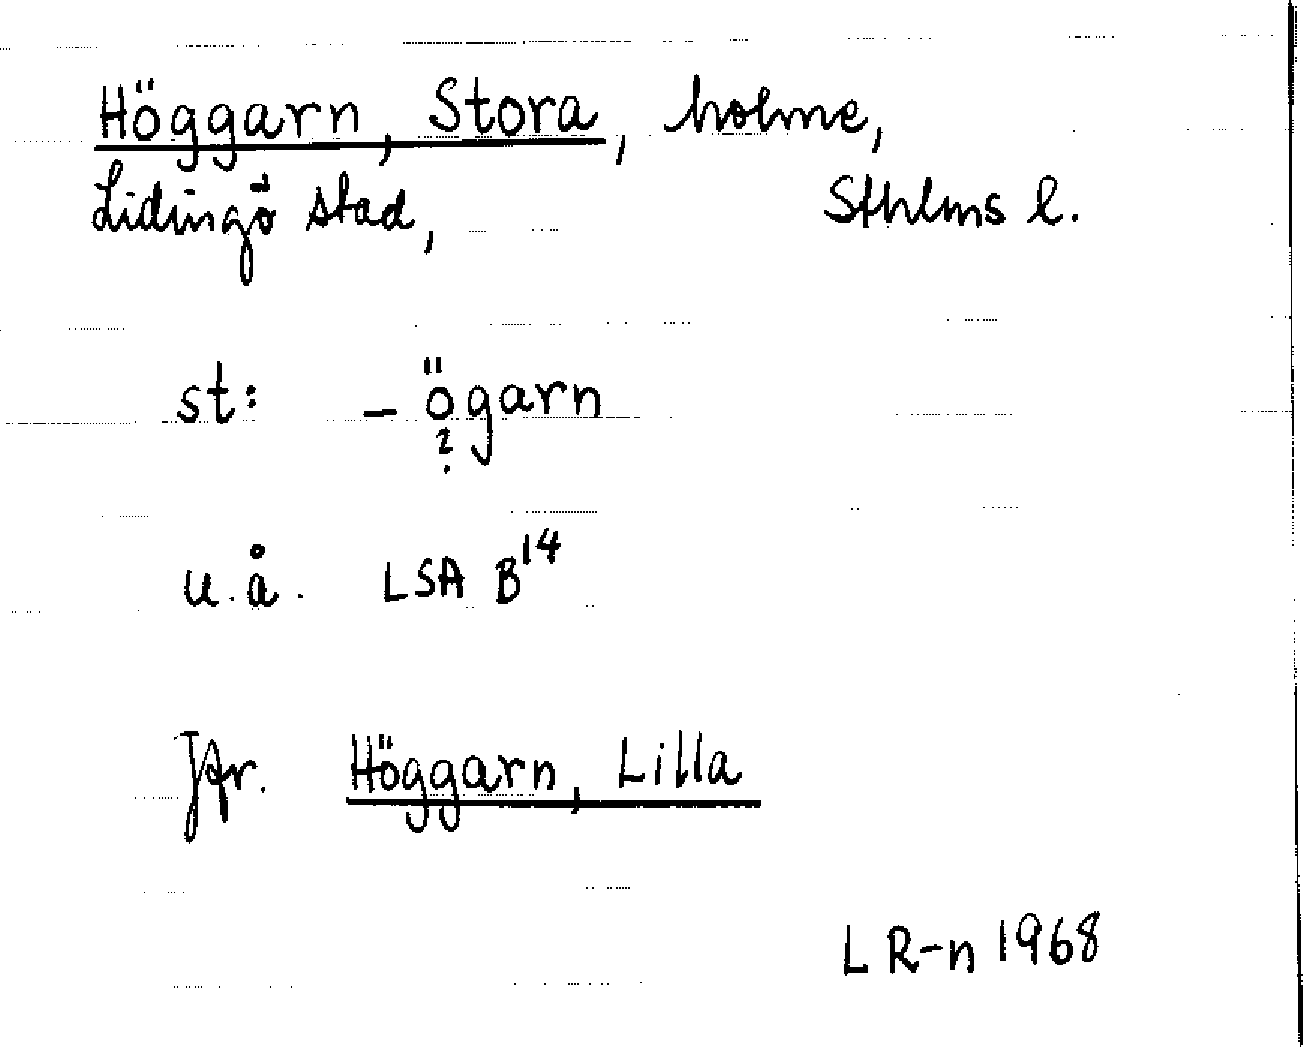 Höggarn, Stora, holme,
Lidingö stad, Sthlms l.
st: – ögarn
?
u.å. LSA B14
Jfr. Höggarn, Lilla
L R-n 1968